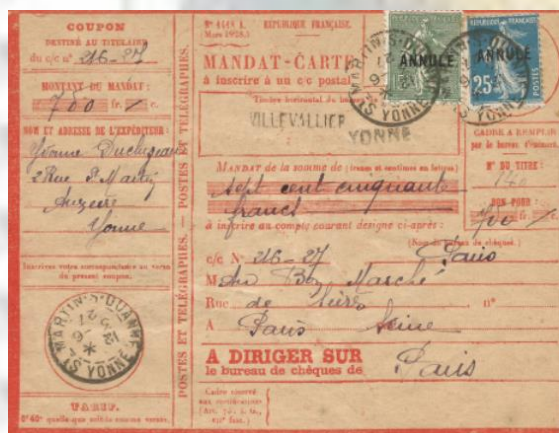 COUPON
DESTINÉ AU TITULAIRE
du c/c n° 216-27
MONTANT DU MANDAT :
750 fr. c.
NOM ET ADRESSE DE L'EXPÉDITEUR :
Yvonne
2 Rue St Martin
Auxerre
Yonne
Inscrivez votre correspondance au verso
du présent coupon.
ST MARTIN-S-OUANNE
YONNE
TARIF.
POSTES ET TÉLÉGRAPHES. — POSTES ET TÉLÉGRAPHES.
RÉPUBLIQUE FRANÇAISE.
MANDAT-CARTE
à inscrire à un c/c postal
Timbre horizontal du bureau
VILLEVALLIER
YONNE
ANNULÉ
ANNULÉ
25c
ST MARTIN-S-OUANNE
YONNE
CADRE A REMPLIR
par le bureau d'émission.
N° DU TITRE :
140
BON POUR :
700 fr. c.
MANDAT de la somme de (francs et centimes en lettres)
sept cent cinquante
francs
à inscrire au compte courant désigné ci-après :
(Nom du bureau de chèques.)
c/c N° 216-27 Paris
M Au Bon Marché
Rue de Sèvres n°
A Paris Seine
A DIRIGER SUR
le bureau de chèques de Paris
Cadre réservé